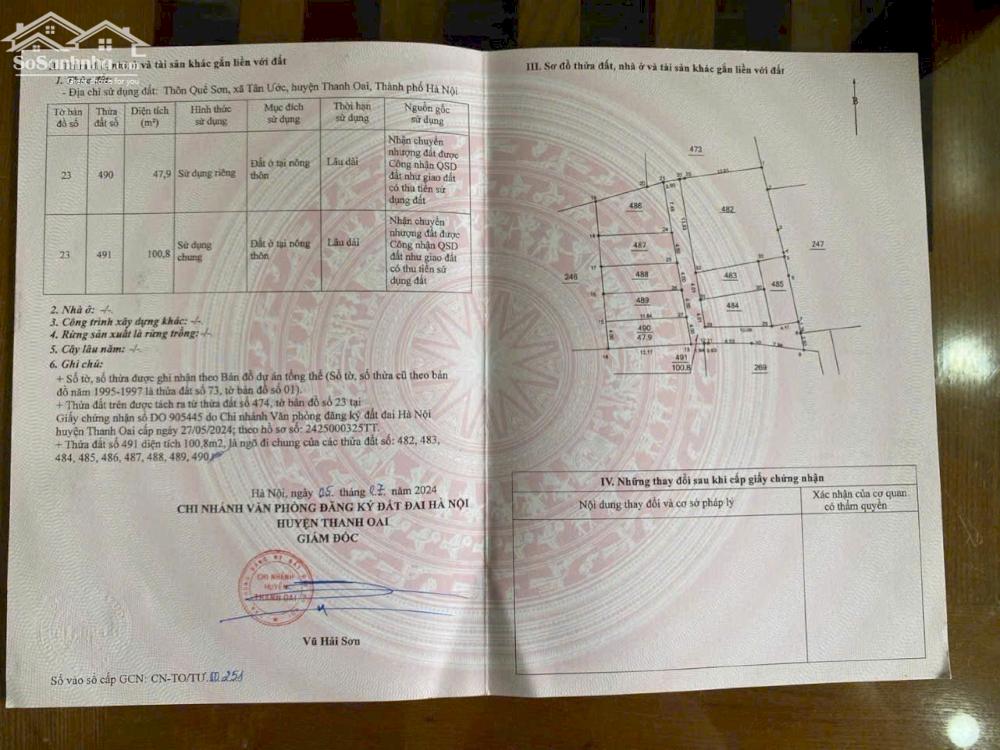 SoSanhnha.com
và tài sản khác gắn liền với đất
1. Thửa đất:
- Địa chỉ sử dụng đất: Thôn Quế Sơn, xã Tân Ước, huyện Thanh Oai, Thành phố Hà Nội
Tờ bản đồ số | Thửa đất số | Diện tích (m²) | Hình thức sử dụng | Mục đích sử dụng | Thời hạn sử dụng | Nguồn gốc sử dụng
23 | 490 | 47,9 | Sử dụng riêng | Đất ở tại nông thôn | Lâu dài | Nhận chuyển nhượng đất được Công nhận QSD đất như giao đất có thu tiền sử dụng đất
23 | 491 | 100,8 | Sử dụng chung | Đất ở tại nông thôn | Lâu dài | Nhận chuyển nhượng đất được Công nhận QSD đất như giao đất có thu tiền sử dụng đất
2. Nhà ở: -/-
3. Công trình xây dựng khác: -/-
4. Rừng sản xuất là rừng trồng: -/-
5. Cây lâu năm: -/-
6. Ghi chú:
+ Số tờ, số thửa được ghi nhận theo Bản đồ dự án tổng thể (Số tờ, số thửa cũ theo bản
đồ năm 1995-1997 là thửa đất số 73, tờ bản đồ số 01).
+ Thửa đất trên được tách ra từ thửa đất số 474, tờ bản đồ số 23 tại
Giấy chứng nhận số DO 905445 do Chi nhánh Văn phòng đăng ký đất đai Hà Nội
huyện Thanh Oai cấp ngày 27/05/2024; theo hồ sơ số: 2425000325TT.
+ Thửa đất số 491 diện tích 100,8m2, là ngõ đi chung của các thửa đất số: 482, 483,
484, 485, 486, 487, 488, 489, 490
Hà Nội, ngày 05 tháng 07 năm 2024
CHI NHÁNH VĂN PHÒNG ĐĂNG KÝ ĐẤT ĐAI HÀ NỘI
HUYỆN THANH OAI
GIÁM ĐỐC
CHI NHÁNH
HUYỆN
THANH OAI
Vũ Hải Sơn
Số vào sổ cấp GCN: CN-TO/TƯ.
III. Sơ đồ thửa đất, nhà ở và tài sản khác gắn liền với đất
B
473
486
482
487
247
488
483
485
246
489
484
490
47,9
491
100,8
269
IV. Những thay đổi sau khi cấp giấy chứng nhận
Nội dung thay đổi và cơ sở pháp lý
Xác nhận của cơ quan
có thẩm quyền